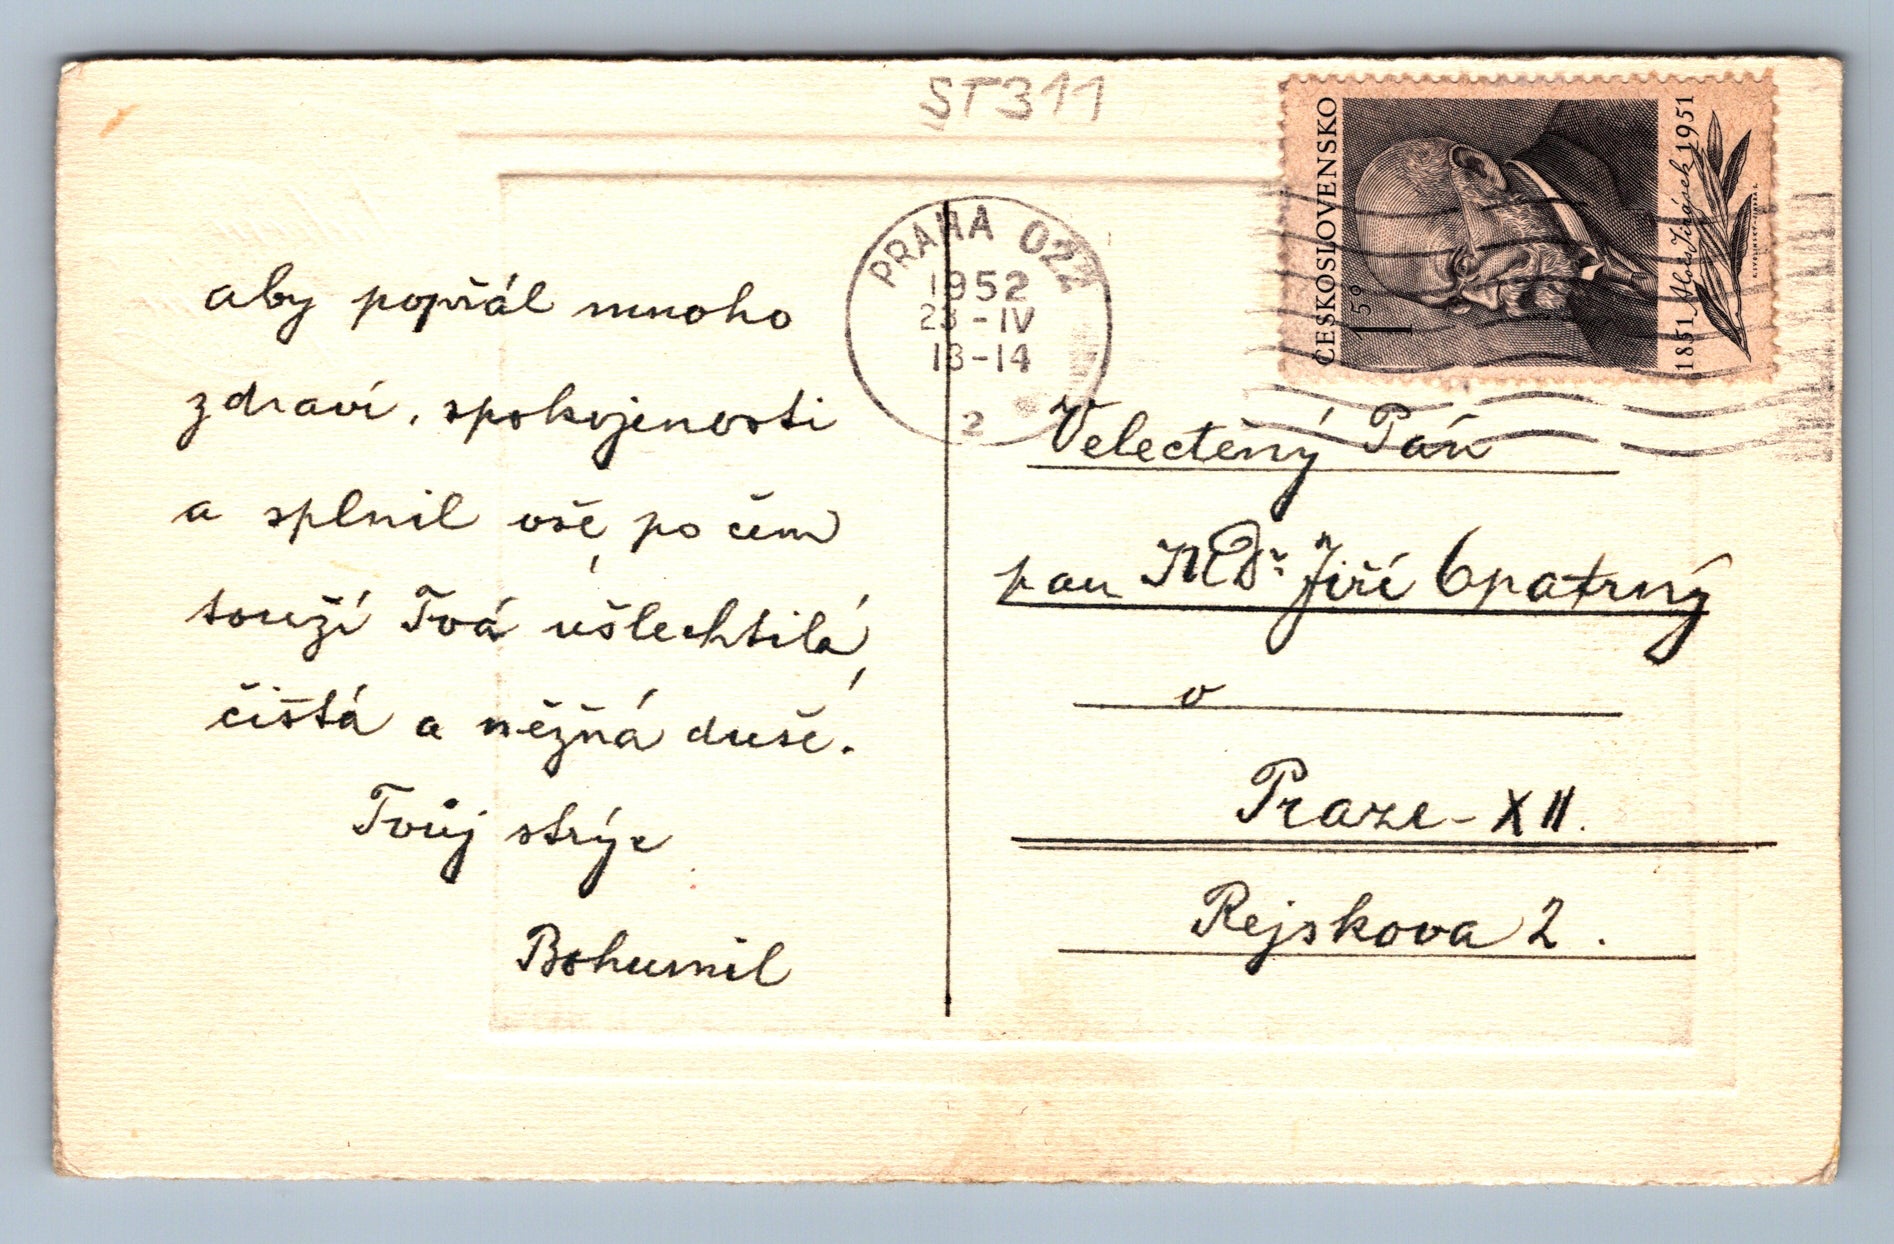 ST311
ČESKOSLOVENSKO
1 50
1851 Alois Jirásek 1951
PRAHA 022
1952
23-IV
13-14
2
aby popřál mnoho
zdraví, spokojenosti
a splnil vše, po čem
touží Tvá ušlechtilá,
čistá a něžná duše.
Tvůj strýc
Bohumil
Velectěný Pán
pan MUDr. Jiří Opatrný
v
Praze-XII.
Rejskova 2.